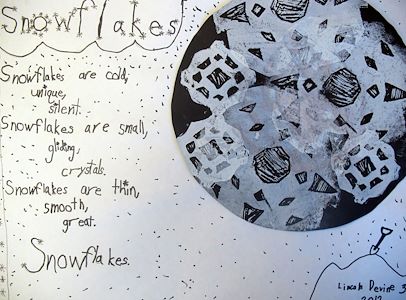 Snowflakes
Snowflakes are cold,
unique,
silent.
Snowflakes are small,
gliding,
crystals.
Snowflakes are thin,
smooth,
great.
Snowflakes.
Lincoln Devine 3
2012